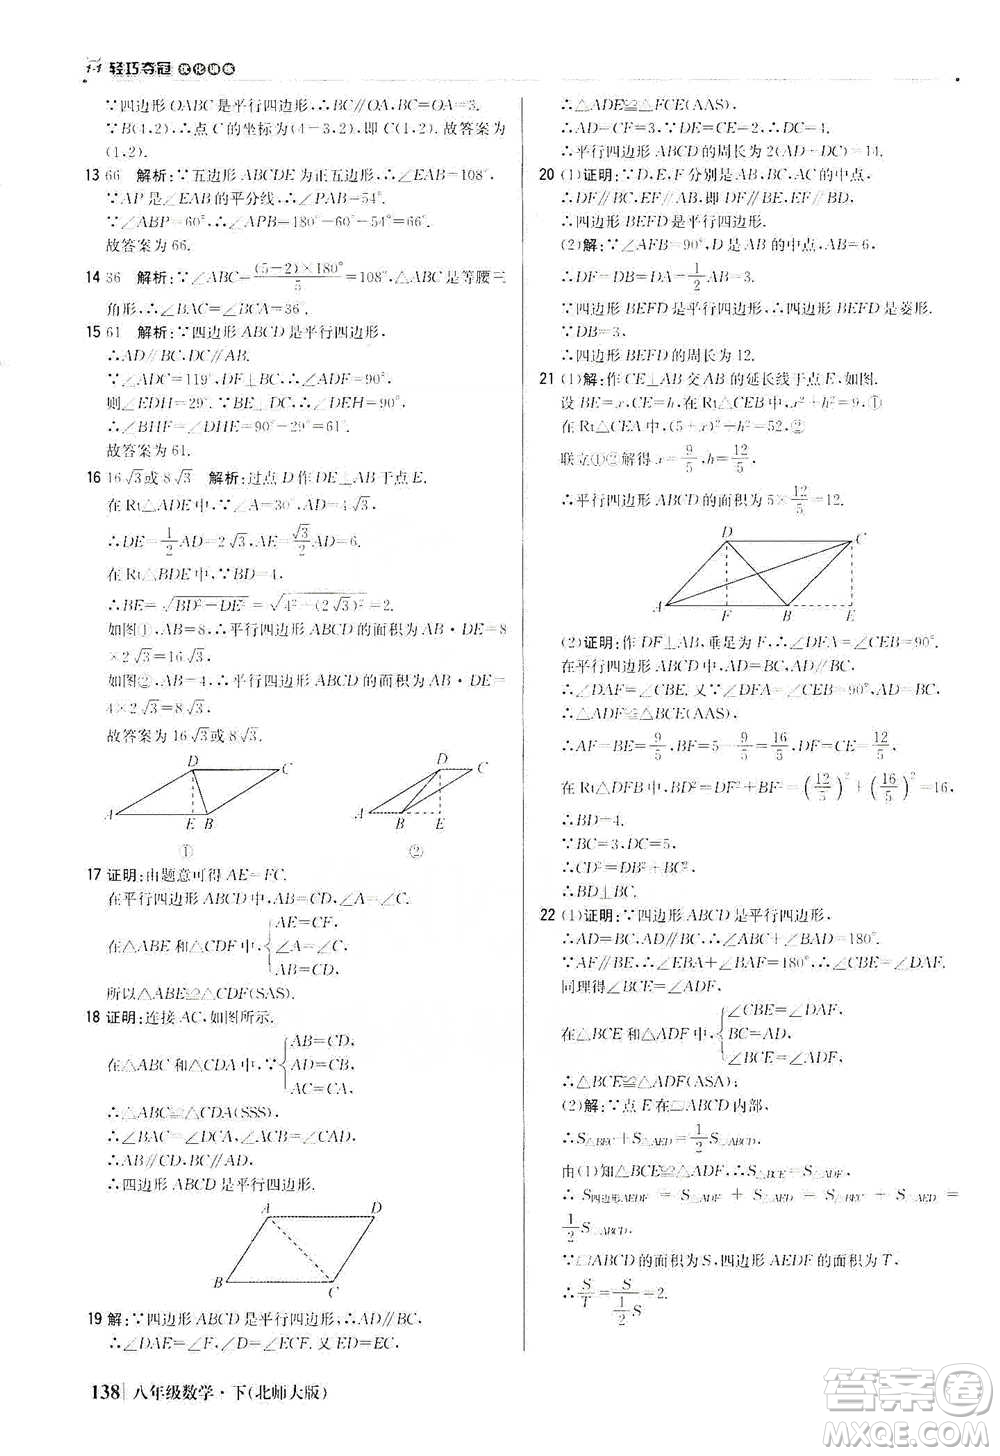 1+1 轻巧夺冠 优化训练
∵四边形OABC是平行四边形,∴BC∥OA,BC=OA=3.
∵B(4,2),∴点C的坐标为(4-3,2),即C(1,2).故答案为
(1,2).
13 66 解析:∵五边形ABCDE为正五边形,∴∠EAB=108°,
∵AP是∠EAB的平分线,∴∠PAB=54°,
∵∠ABP=60°,∴∠APB=180°-60°-54°=66°.
故答案为66.
14 36 解析:∵∠ABC=(5-2)×180°/5=108°,△ABC是等腰三
角形,∴∠BAC=∠BCA=36°.
15 61 解析:∵四边形ABCD是平行四边形,
∴AD∥BC,DC∥AB.
∵∠ADC=119°,DF⊥BC,∴∠ADF=90°,
则∠EDH=29°.∵BE⊥DC,∴∠DEH=90°.
∴∠BHF=∠DHE=90°-29°=61°.
故答案为61.
16 16√3或8√3 解析:过点D作DE⊥AB于点E.
在Rt△ADE中,∵∠A=30°,AD=4√3,
∴DE=1/2AD=2√3,AE=√3/2AD=6.
在Rt△BDE中,∵BD=4,
∴BE=√(BD²-DE²)=√(4²-(2√3)²)=2.
如图①,AB=8,∴平行四边形ABCD的面积为AB·DE=8
×2√3=16√3,
如图②,AB=4,∴平行四边形ABCD的面积为AB·DE=
4×2√3=8√3,
故答案为16√3或8√3.
D C
A E B
①
D C
A B E
②
17 证明:由题意可得AE=FC.
在平行四边形ABCD中,AB=CD,∠A=∠C.
AE=CF,
在△ABE和△CDF中,{∠A=∠C,
AB=CD,
所以△ABE≌△CDF(SAS).
18 证明:连接AC,如图所示.
AB=CD,
在△ABC和△CDA中,∵{BC=DA,
AC=CA,
∴△ABC≌△CDA(SSS),
∴∠BAC=∠DCA,∠ACB=∠CAD,
∴AB∥CD,BC∥AD,
∴四边形ABCD是平行四边形.
A D
B C
19 解:∵四边形ABCD是平行四边形,∴AD∥CF,
∴∠DAE=∠F,∠D=∠ECF.又ED=EC,
138 八年级数学·下(北师大版)
∴△ADE≌△FCE(AAS)
∴AD=CF=3,DE=CE=2,∴DC=4.
∴平行四边形ABCD的周长为2(AD+DC)=14.
20 (1)证明:∵D,E,F分别是AB,BC,AC的中点,
∴DF∥BC,EF∥AB,∴DF∥BE,EF∥BD,
∴四边形BEFD是平行四边形.
(2)解:∵∠AFB=90°,D是AB的中点,AB=6,
∴DF=DB=DA=1/2AB=3.
∵四边形BEFD是平行四边形,∴四边形BEFD是菱形.
∵DB=3,
∴四边形BEFD的周长为12.
21 (1)解:作CE⊥AB交AB的延长线于点E,如图.
设BE=x,CE=h,在Rt△CEB中,x²+h²=9,①
在Rt△CEA中,(5+x)²+h²=52,②
联立①②解得x=9/5,h=12/5,
∴平行四边形ABCD的面积为5×12/5=12.
D C
A F B E
(2)证明:作DF⊥AB,垂足为F,∴∠DFA=∠CEB=90°.
在平行四边形ABCD中,AD=BC,AD∥BC,
∴∠DAF=∠CBE.又∵∠DFA=∠CEB=90°,AD=BC,
∴△ADF≌△BCE(AAS),
∴AF=BE=9/5,BF=5-9/5=16/5,DF=CE=12/5.
在Rt△DFB中,BD²=DF²+BF²=(12/5)²+(16/5)²=16,
∴BD=4.
∵BC=3,DC=5,
∴CD²=DB²+BC²,
∴BD⊥BC.
22 (1)证明:∵四边形ABCD是平行四边形,
∴AD=BC,AD∥BC,∴∠ABC+∠BAD=180°.
∵AF∥BE,∴∠EBA+∠BAF=180°,∴∠CBE=∠DAF.
同理得∠BCE=∠ADF.
∠CBE=∠DAF,
在△BCE和△ADF中,{BC=AD,
∠BCE=∠ADF,
∴△BCE≌△ADF(ASA);
(2)解:∵点E在▱ABCD内部,
∴S△BEC+S△AED=1/2S▱ABCD,
由(1)知△BCE≌△ADF,∴S△BCE=S△ADF,
∴S四边形AEDF=S△ADF+S△AED=S△BEC+S△AED=
1/2S▱ABCD.
∵▱ABCD的面积为S,四边形AEDF的面积为T,
∴S/T=S/(1/2S)=2.
答案圈
MXQE.COM